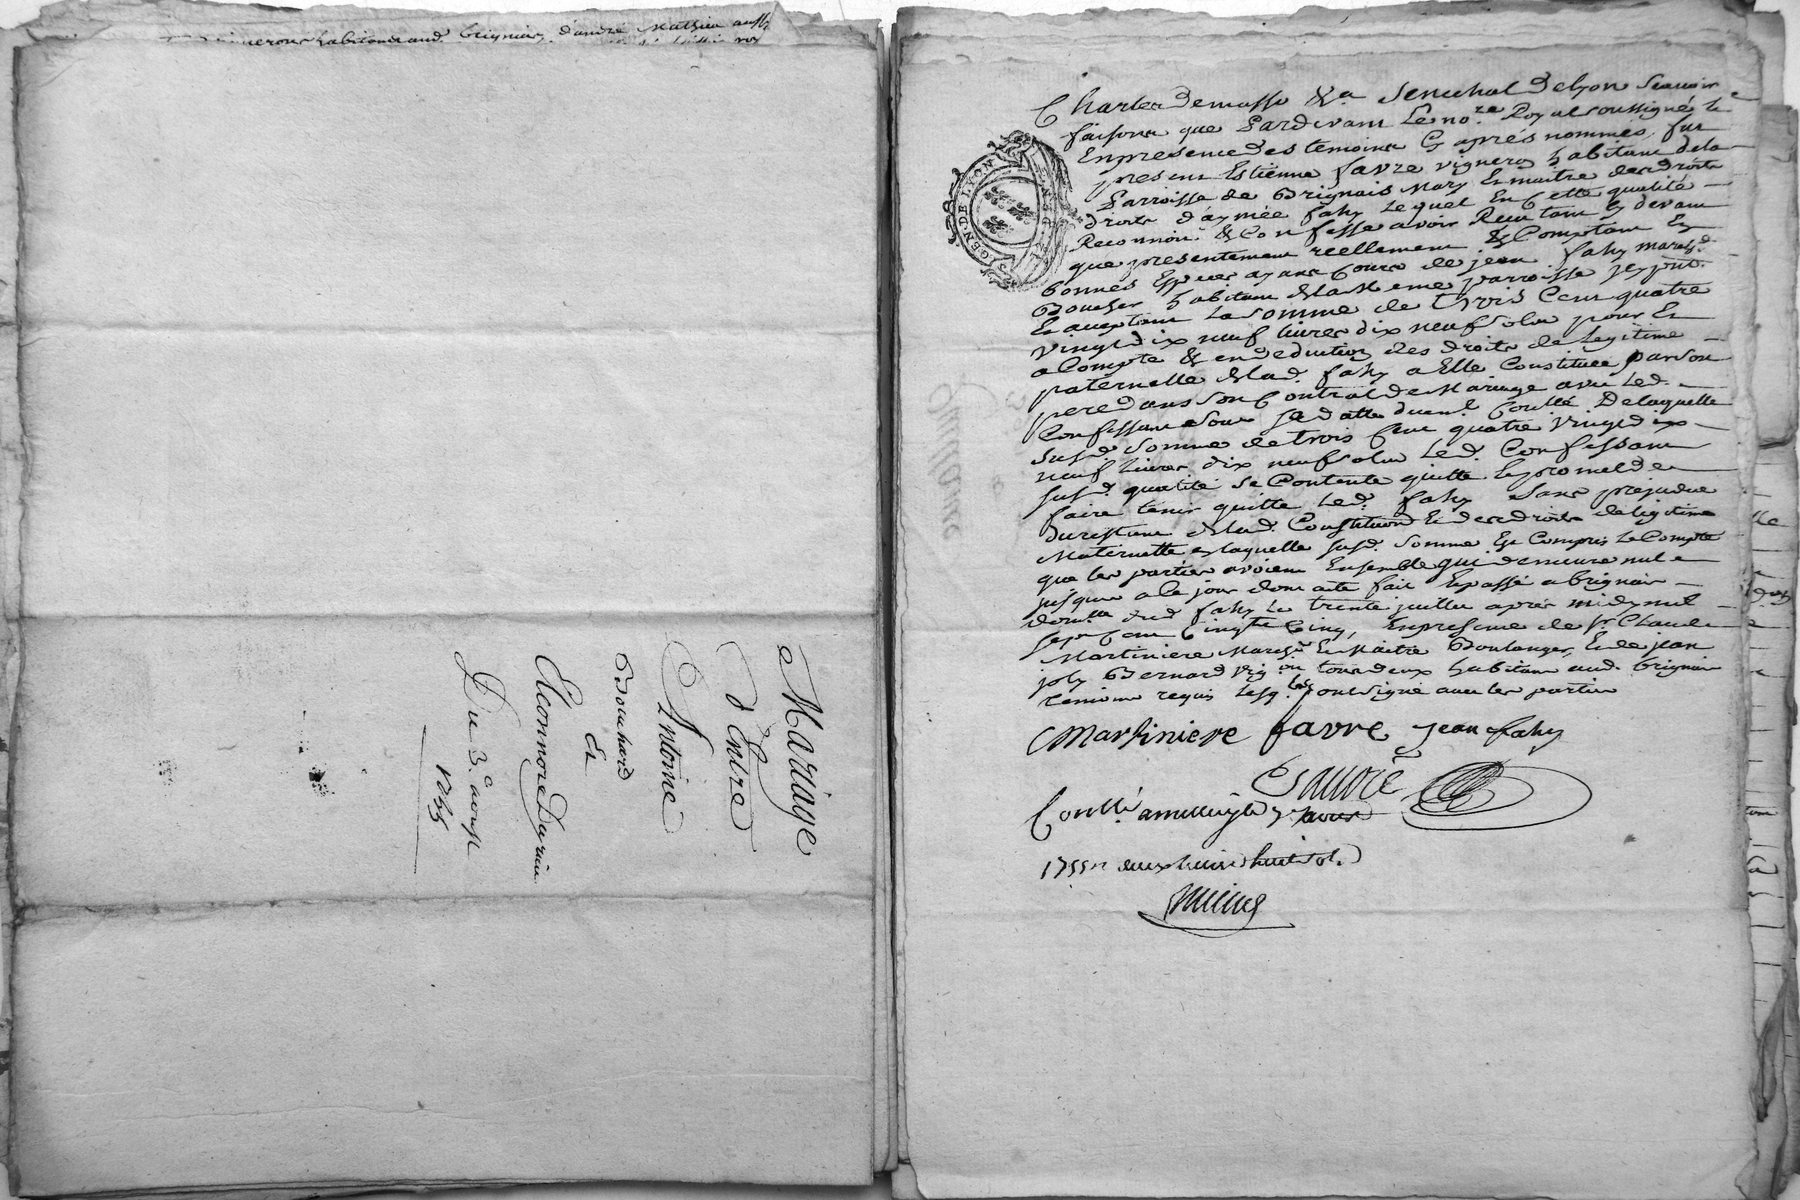 vignerons habitans aud. brignais, d'andré Mathieu aussy
Mariage
D'Entre
Antoine
Bouchard
Et
Eleonnore Dupuis
Du 3.e aoust
1755
GEN DE LYON
Charles Demasso &a Senechal de Lyon Scavoir
faisons que Pardevant Le no.re Royal soussigné &
En presence des temoins Cy après nommés, fut
present Estienne favre vigneron habitant de la
Parroisse de Brignais Mary Et maitre des droits
droits d'aymée fahy Lequel En Cette qualité
Reconnoit & Confesse avoir Reçu tant Cy devant
que presentement reellement & Comptant En
bonnes Especes ayant Cours de jean fahy march.d
Boucher habitant de la Meme parroisse Icy pnt.
Et acceptant La somme de trois Cent quatre
vingt dix neuf Livres dix neuf sols pour Et
a Compte & en deduction des droits de Legitime
paternelle de lad. fahy a Elle Constituée par son
pere dans son Contrat de Mariage avec Led.
Confessant sous Sa datte duem.t Conllé. De laquelle
susd. somme de trois Cent quatre vingt dix
neuf Livres dix neuf sols Led. Confessant
susd. qualité se Contente quitte Et promet de
faire tenir quitte Led. fahy sans prejudice
du restant de lad. Constitution Et des droits de legitime
Maternelle en laquelle susd. somme Est Compris Le Compte
que les parties avoient Ensemble qui demeure nul
jusques a Ce jour dont acte fait Et passé a brignais
dom.lle dud. fahy Le trente juillet après midy mil
sept Cent Cinqte Cinq, En presence de Sr. Claude
Martiniere March.d Et Maitre Boulanger, Et de jean
joly Bernard vig.on tous deux habitans aud. brignais
temoins requis Lesq.ls ont signé avec les parties
Martiniere favre jean fahy
Conllé a
1755 deux livres huit sols